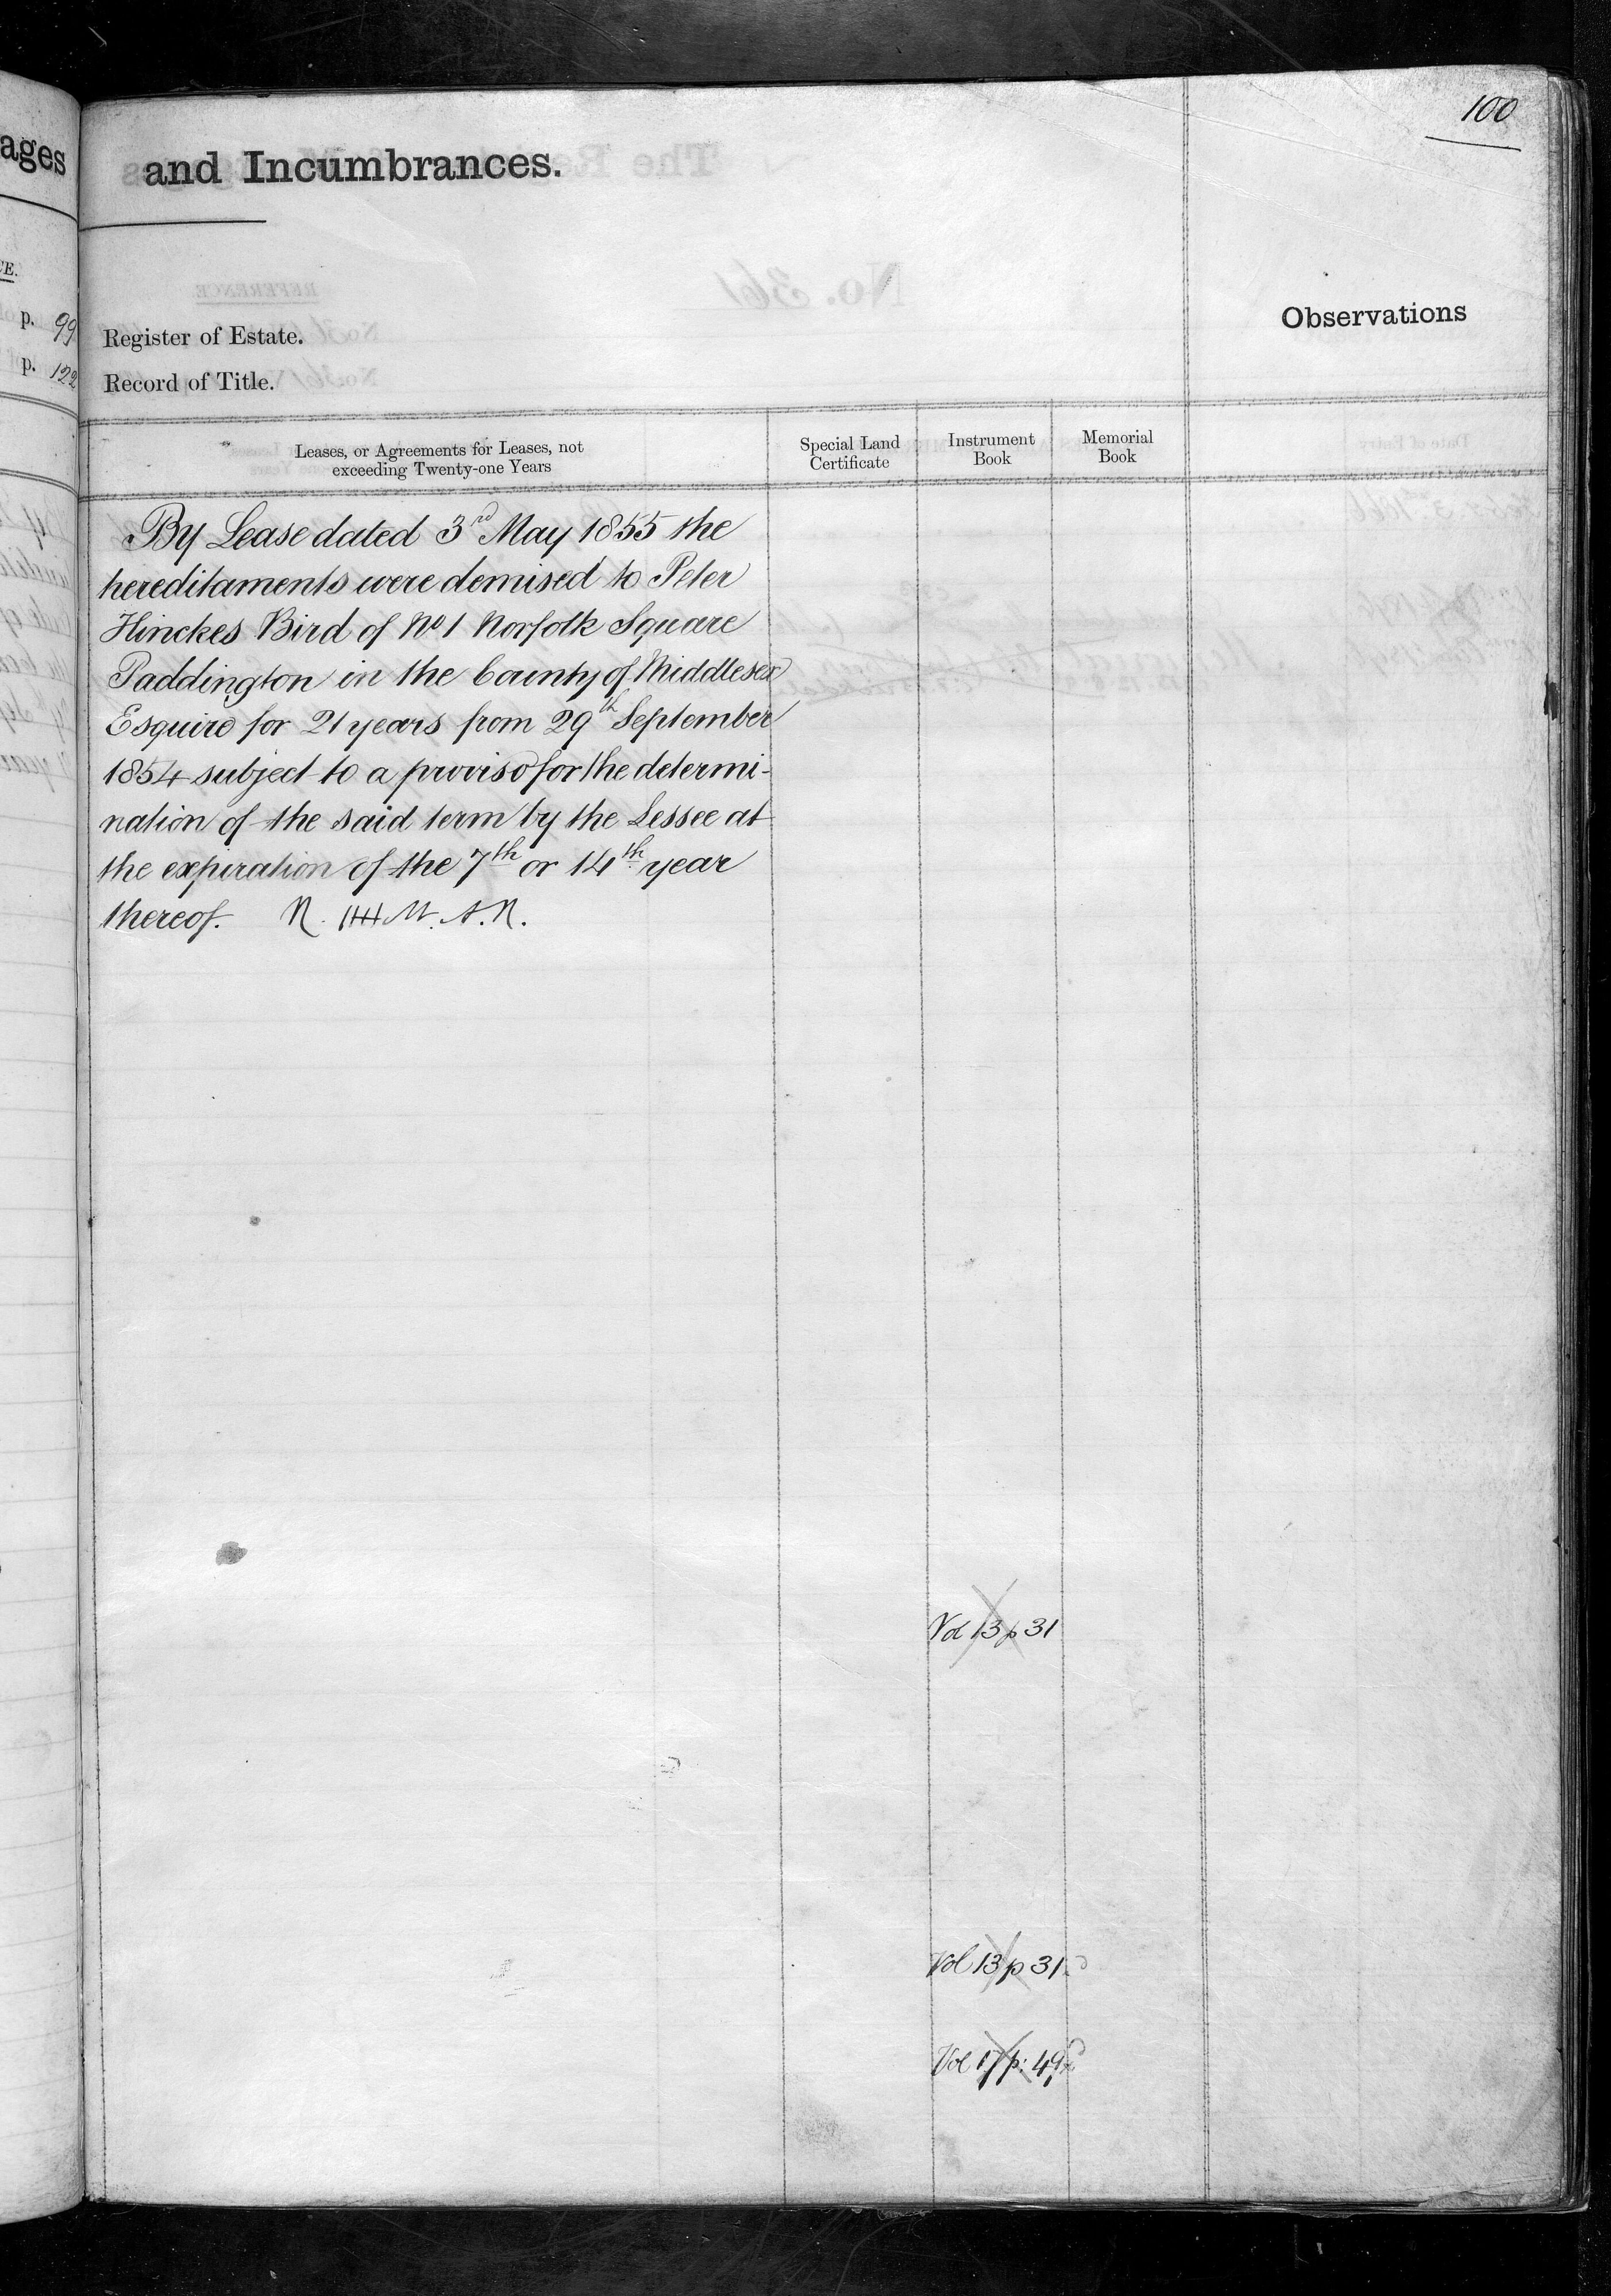 100
ages
and Incumbrances.
p. 99
Register of Estate.
p. 122
Record of Title.
Observations
Leases, or Agreements for Leases, not
exceeding Twenty-one Years
Special Land
Certificate
Instrument
Book
Memorial
Book
By Lease dated 3rd May 1855 the
hereditaments were demised to Peter
Hinckes Bird of No 1 Norfolk Square
Paddington in the County of Middlesex
Esquire for 21 years from 29th September
1854 subject to a proviso for the determi-
nation of the said term by the Lessee at
the expiration of the 7th or 14th year
thereof.
Vol 13 p 31
Vol 13 p 31
Vol 17 p: 49